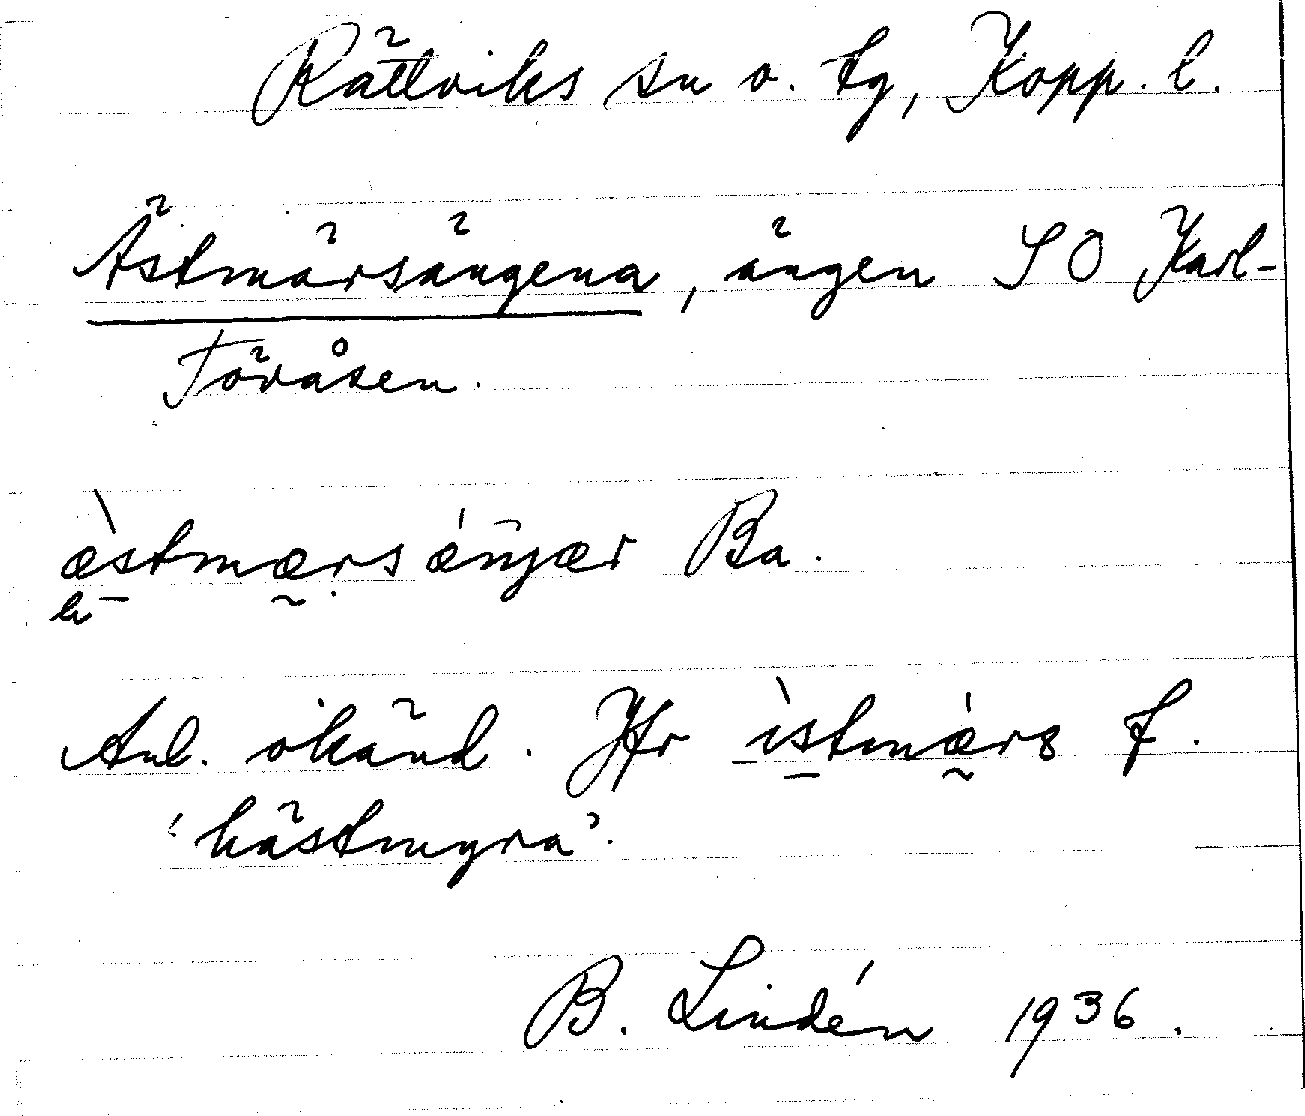 Rättviks sn o. tg, Kopp. l.
Ästmärsängena, ängen SO Karl-
Töråsen.
æ̀stmærsǽŋær Ba.
Anl. okänd. Jfr ìstmǽrs f.
'hästmyra'.
B. Lindén 1936.